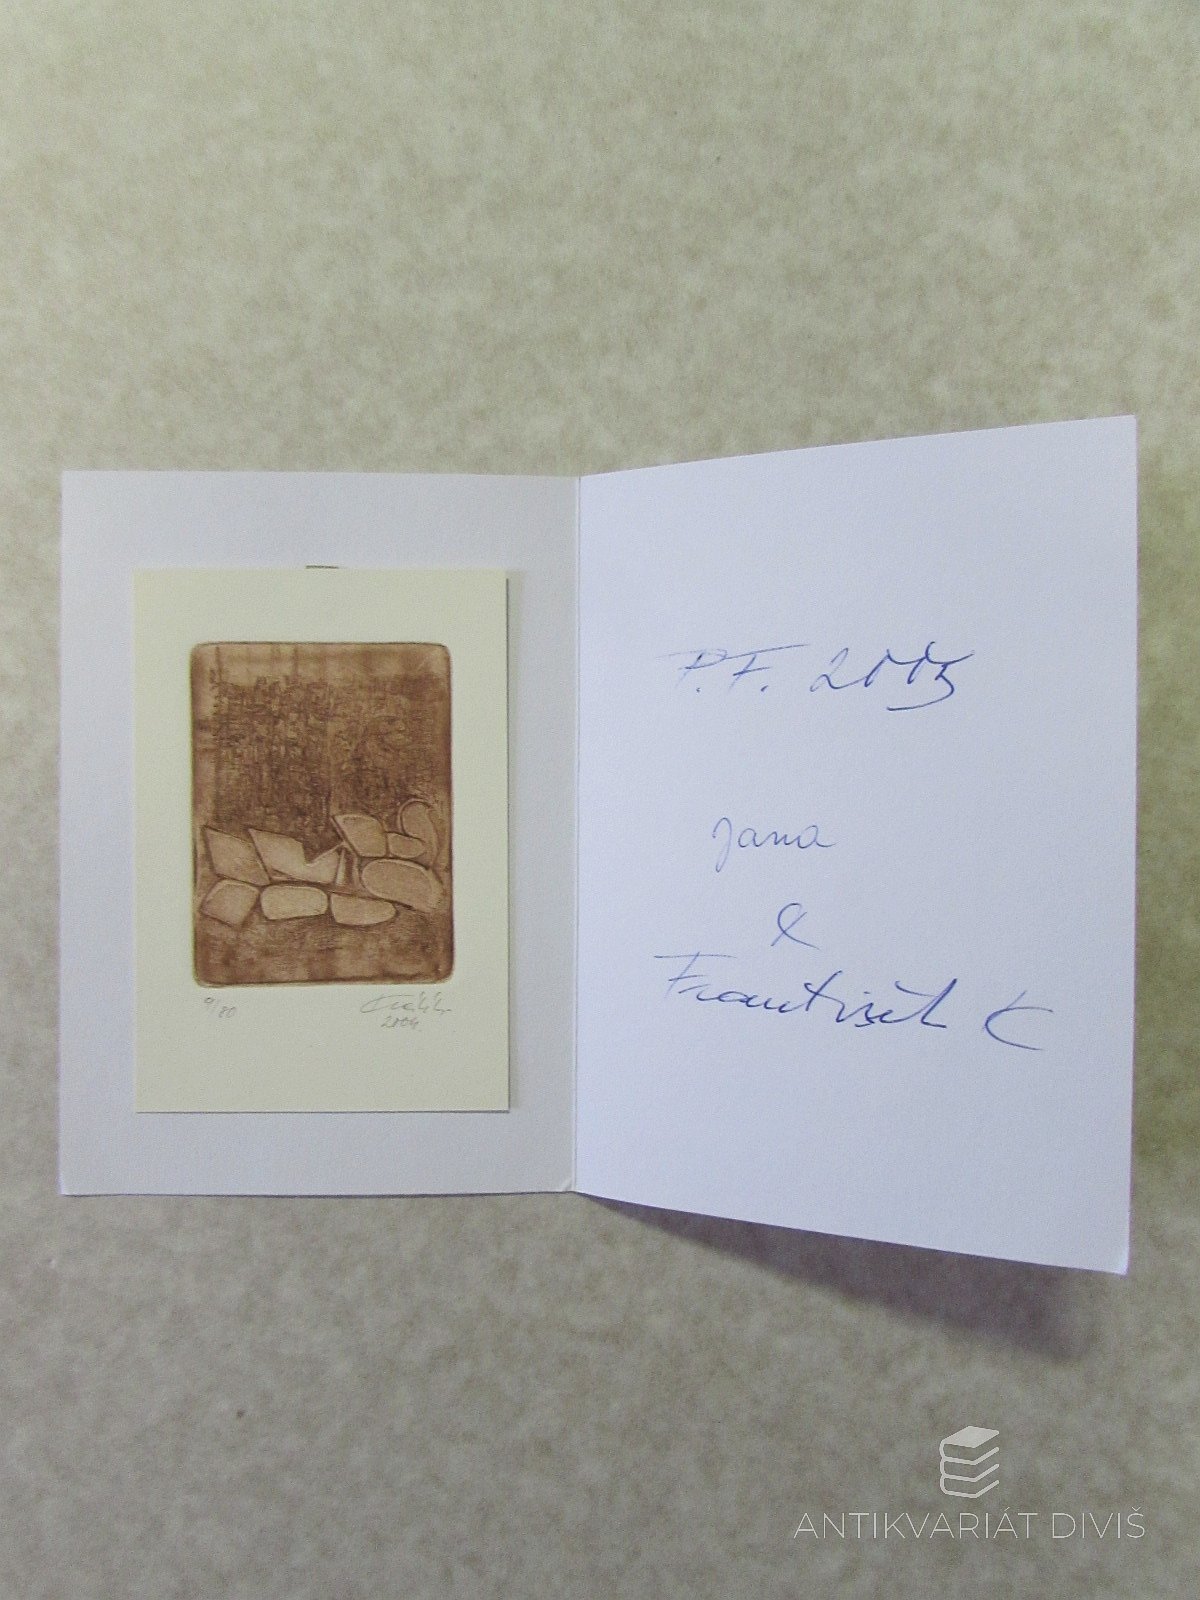 9/80
2004
P.F. 2005
Jana
&
František K
ANTIKVARIÁT DIVIŠ